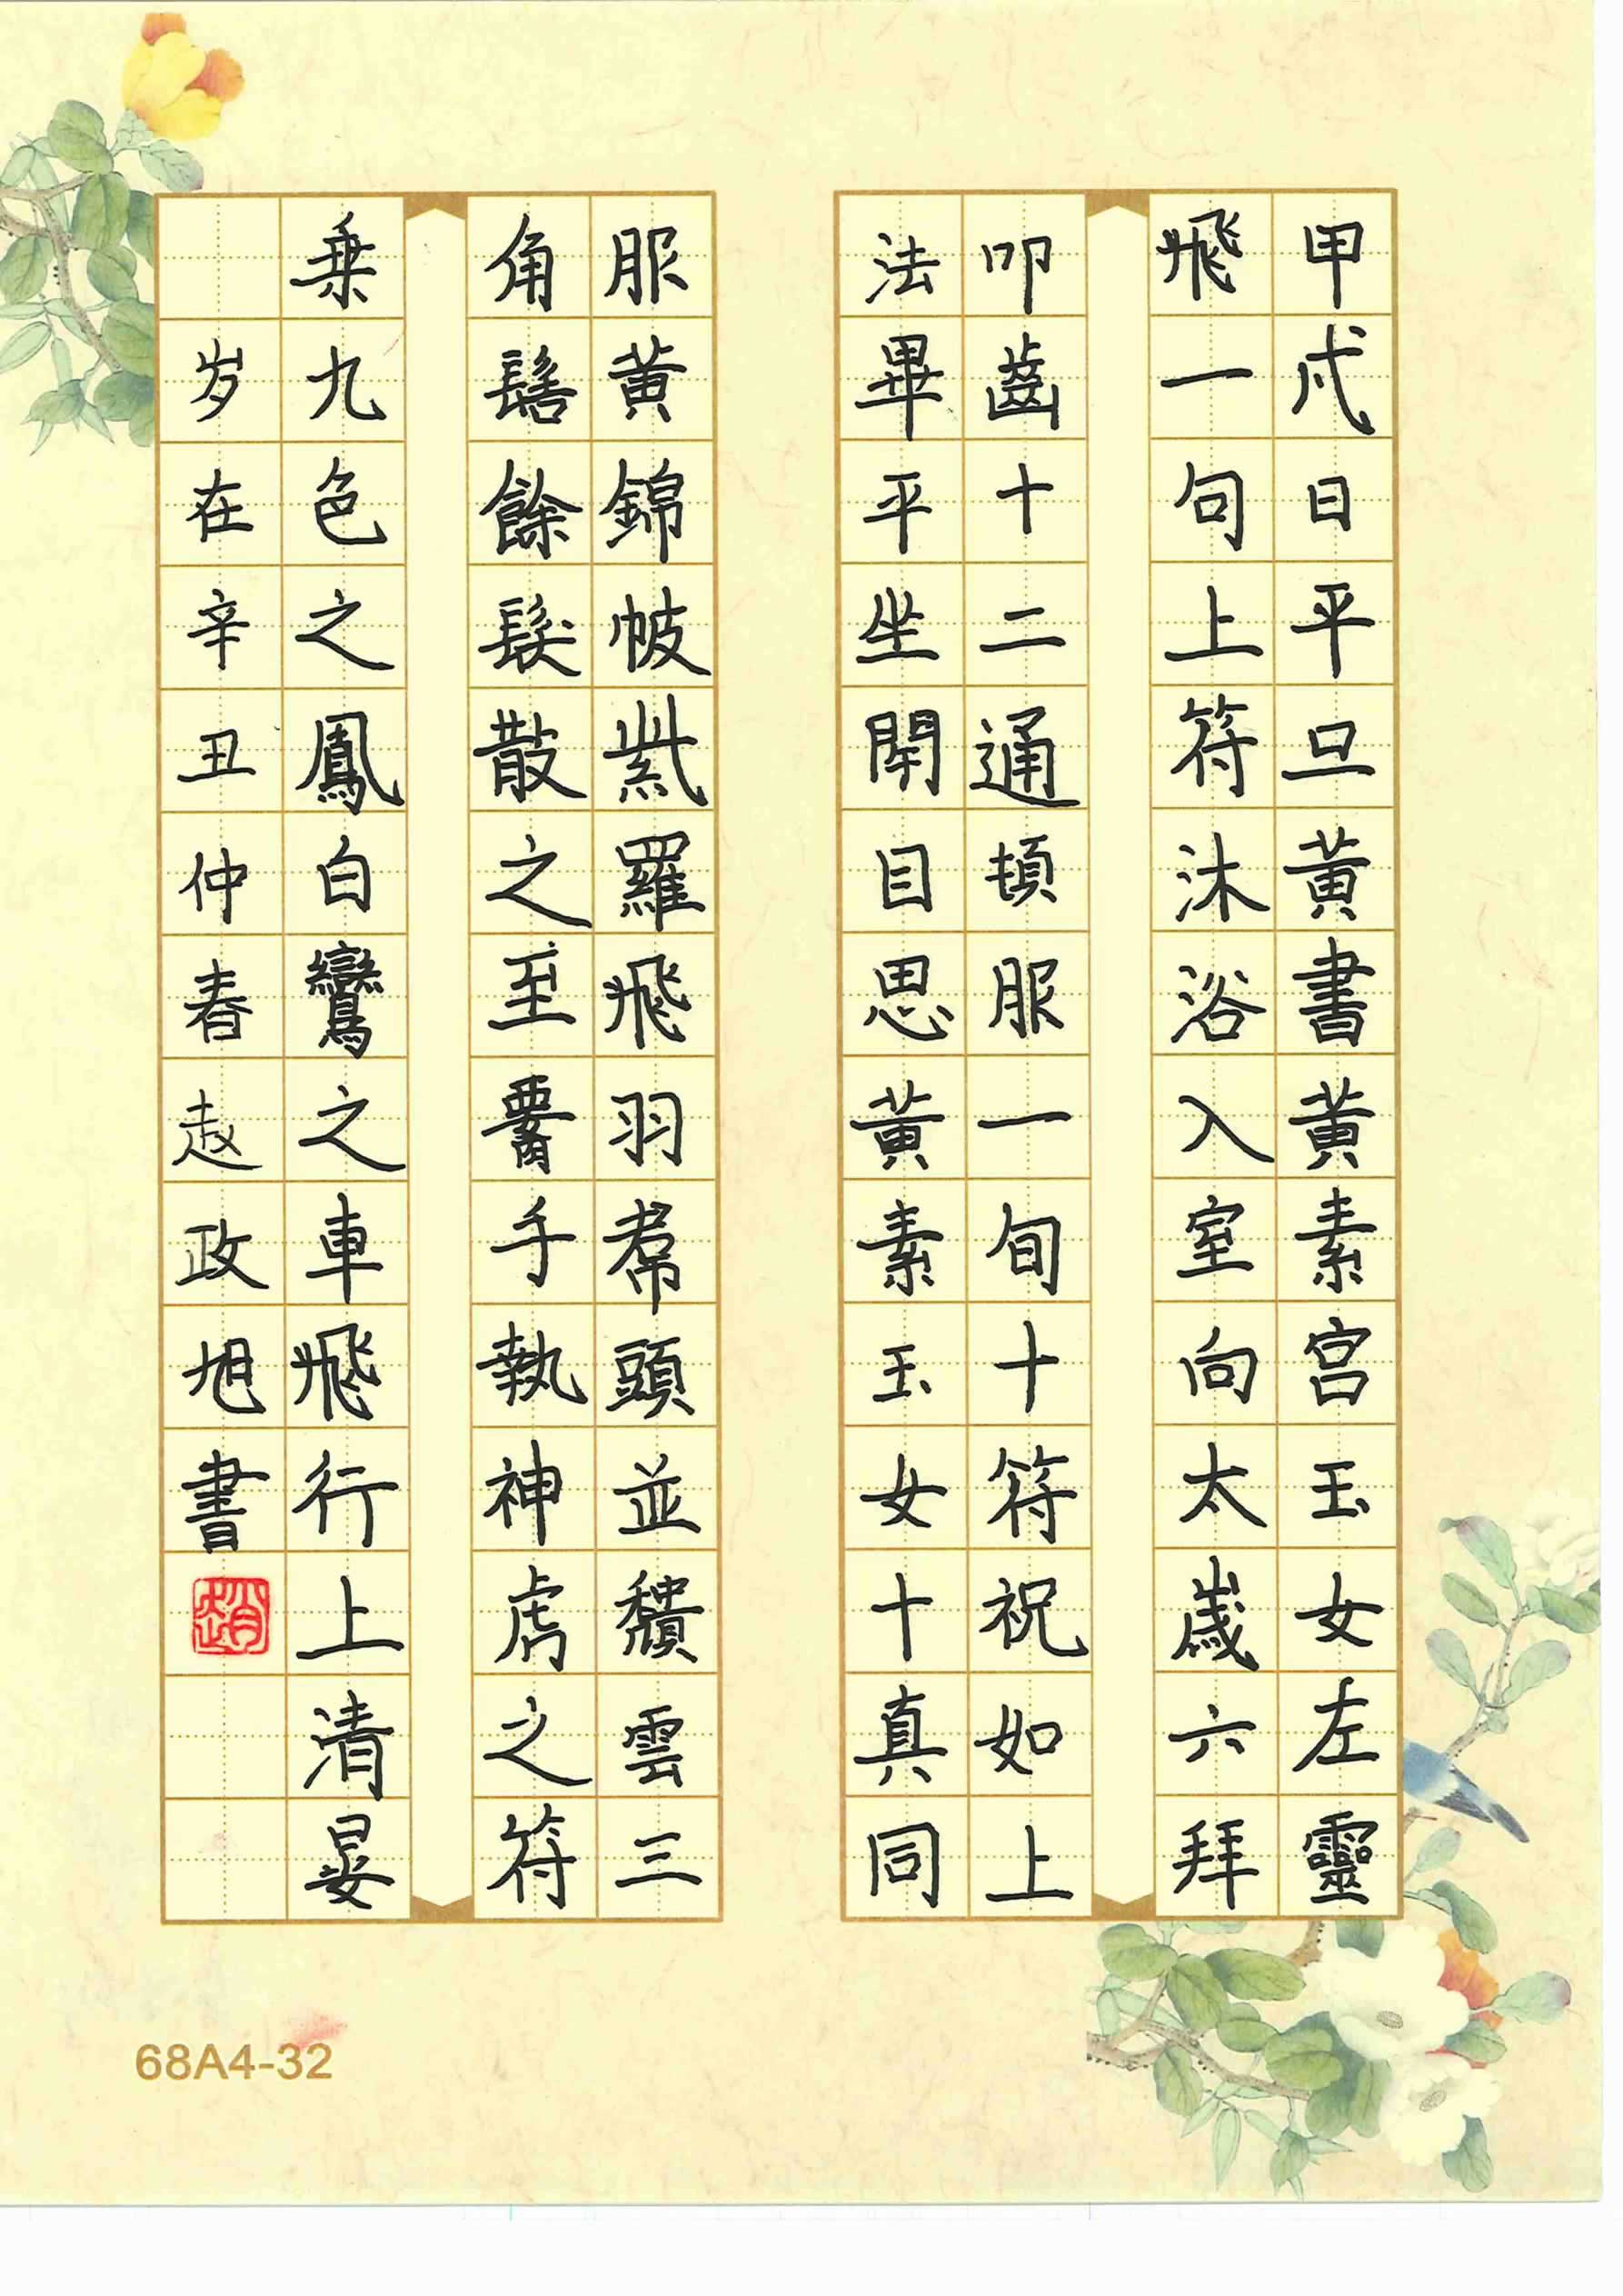 甲戌日平旦黃書黃素宮玉女左靈
飛一旬上符沐浴入室向太歲六拜
叩齒十二通頓服一旬十符祝如上
法畢平坐閉目思黃素玉女十真同
服黃錦帔紫羅飛羽帬頭並頹雲三
角髻餘髮散之至腰手執神虎之符
乗九色之鳳白鸞之車飛行上清晏
岁在辛丑仲春赵政旭書
趙
68A4-32